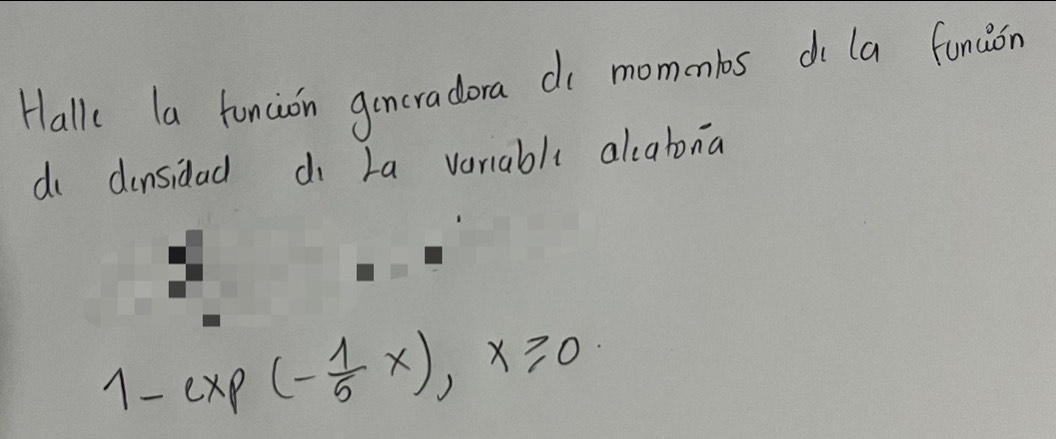 Halle la función generadora de momentos de la función
de densidad de La variable aleatoria
1 - exp(-1/5 x), x ≥ 0.